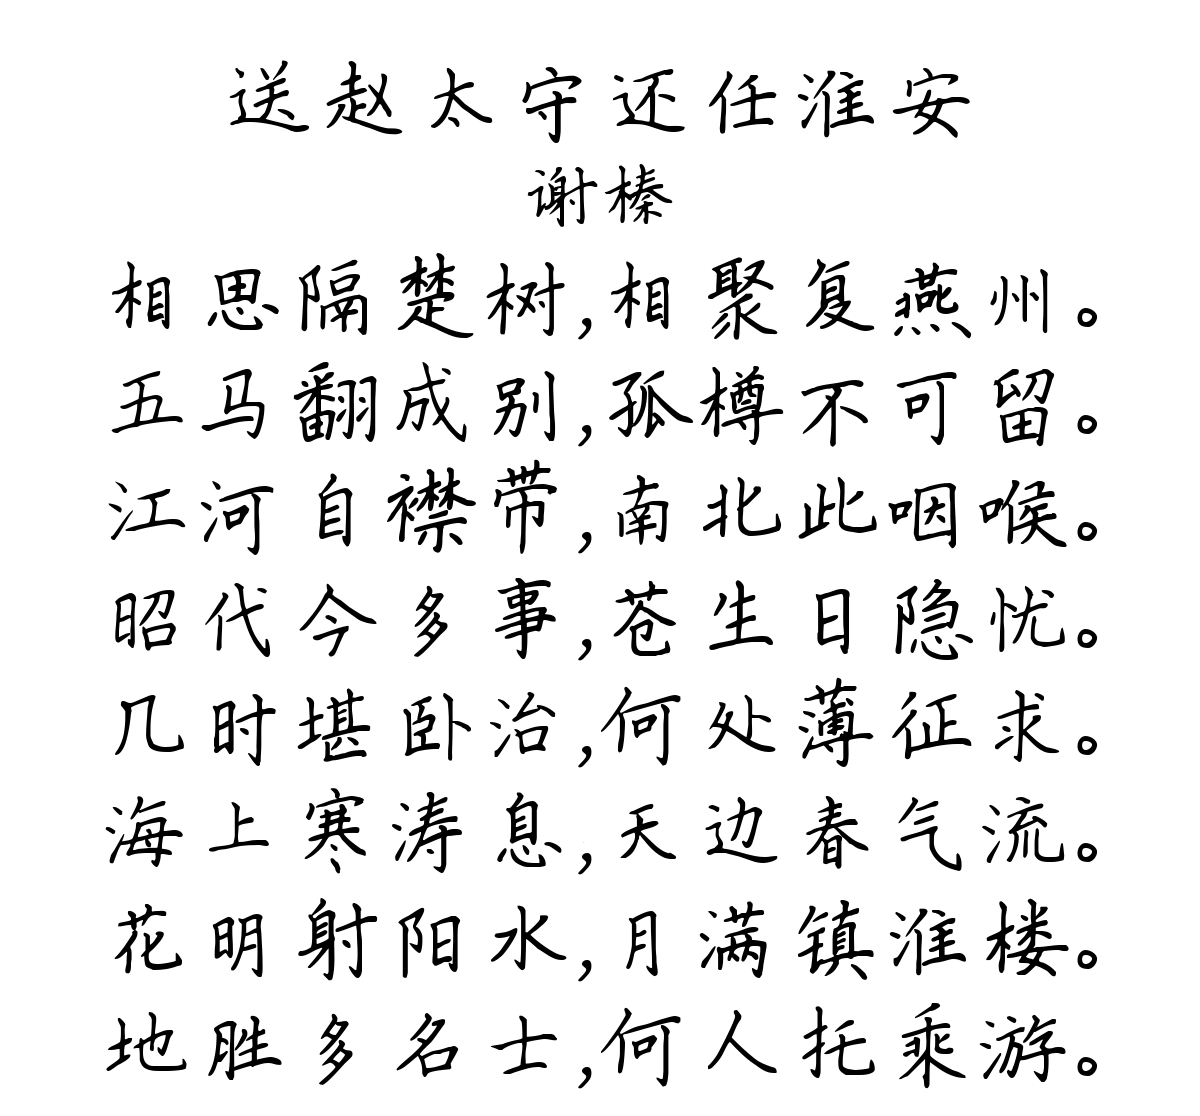 送赵太守还任淮安
谢榛
相思隔楚树,相聚复燕州。
五马翻成别,孤樽不可留。
江河自襟带,南北此咽喉。
昭代今多事,苍生日隐忧。
几时堪卧治,何处薄征求。
海上寒涛息,天边春气流。
花明射阳水,月满镇淮楼。
地胜多名士,何人托乘游。